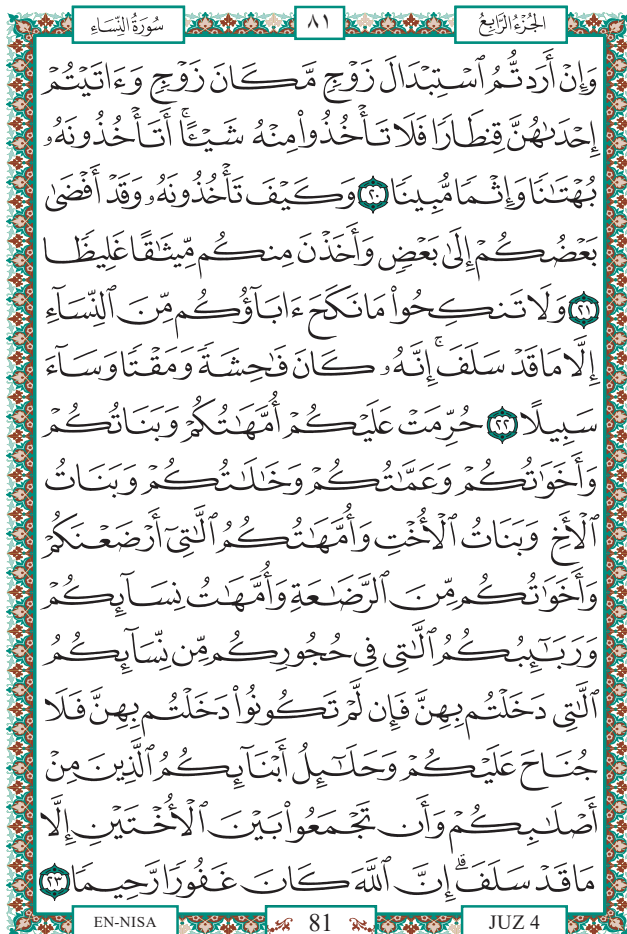 الجُزْءُ الرَّابِعُ ٨١ سُورَةُ النِّسَاءِ
وَإِنْ أَرَدتُّمُ ٱسْتِبْدَالَ زَوْجٍ مَّكَانَ زَوْجٍ وَءَاتَيْتُمْ
إِحْدَىٰهُنَّ قِنطَارًا فَلَا تَأْخُذُوا۟ مِنْهُ شَيْـًٔا ۚ أَتَأْخُذُونَهُۥ
بُهْتَٰنًا وَإِثْمًا مُّبِينًا ٢٠ وَكَيْفَ تَأْخُذُونَهُۥ وَقَدْ أَفْضَىٰ
بَعْضُكُمْ إِلَىٰ بَعْضٍ وَأَخَذْنَ مِنكُم مِّيثَٰقًا غَلِيظًا
٢١ وَلَا تَنكِحُوا۟ مَا نَكَحَ ءَابَآؤُكُم مِّنَ ٱلنِّسَآءِ
إِلَّا مَا قَدْ سَلَفَ ۚ إِنَّهُۥ كَانَ فَٰحِشَةً وَمَقْتًا وَسَآءَ
سَبِيلًا ٢٢ حُرِّمَتْ عَلَيْكُمْ أُمَّهَٰتُكُمْ وَبَنَاتُكُمْ
وَأَخَوَٰتُكُمْ وَعَمَّٰتُكُمْ وَخَٰلَٰتُكُمْ وَبَنَاتُ
ٱلْأَخِ وَبَنَاتُ ٱلْأُخْتِ وَأُمَّهَٰتُكُمُ ٱلَّٰتِىٓ أَرْضَعْنَكُمْ
وَأَخَوَٰتُكُم مِّنَ ٱلرَّضَٰعَةِ وَأُمَّهَٰتُ نِسَآئِكُمْ
وَرَبَٰٓئِبُكُمُ ٱلَّٰتِى فِى حُجُورِكُم مِّن نِّسَآئِكُمُ
ٱلَّٰتِى دَخَلْتُم بِهِنَّ فَإِن لَّمْ تَكُونُوا۟ دَخَلْتُم بِهِنَّ فَلَا
جُنَاحَ عَلَيْكُمْ وَحَلَٰٓئِلُ أَبْنَآئِكُمُ ٱلَّذِينَ مِنْ
أَصْلَٰبِكُمْ وَأَن تَجْمَعُوا۟ بَيْنَ ٱلْأُخْتَيْنِ إِلَّا
مَا قَدْ سَلَفَ ۗ إِنَّ ٱللَّهَ كَانَ غَفُورًا رَّحِيمًا ٢٣
EN-NISA 81 JUZ 4